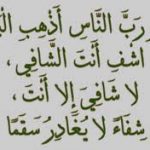 رَبَّ النَّاسِ أَذْهِبِ الْ
اشْفِ أَنْتَ الشَّافِي،
لَا شَافِيَ إِلَّا أَنْتَ،
شِفَاءً لَا يُغَادِرُ سَقَمًا